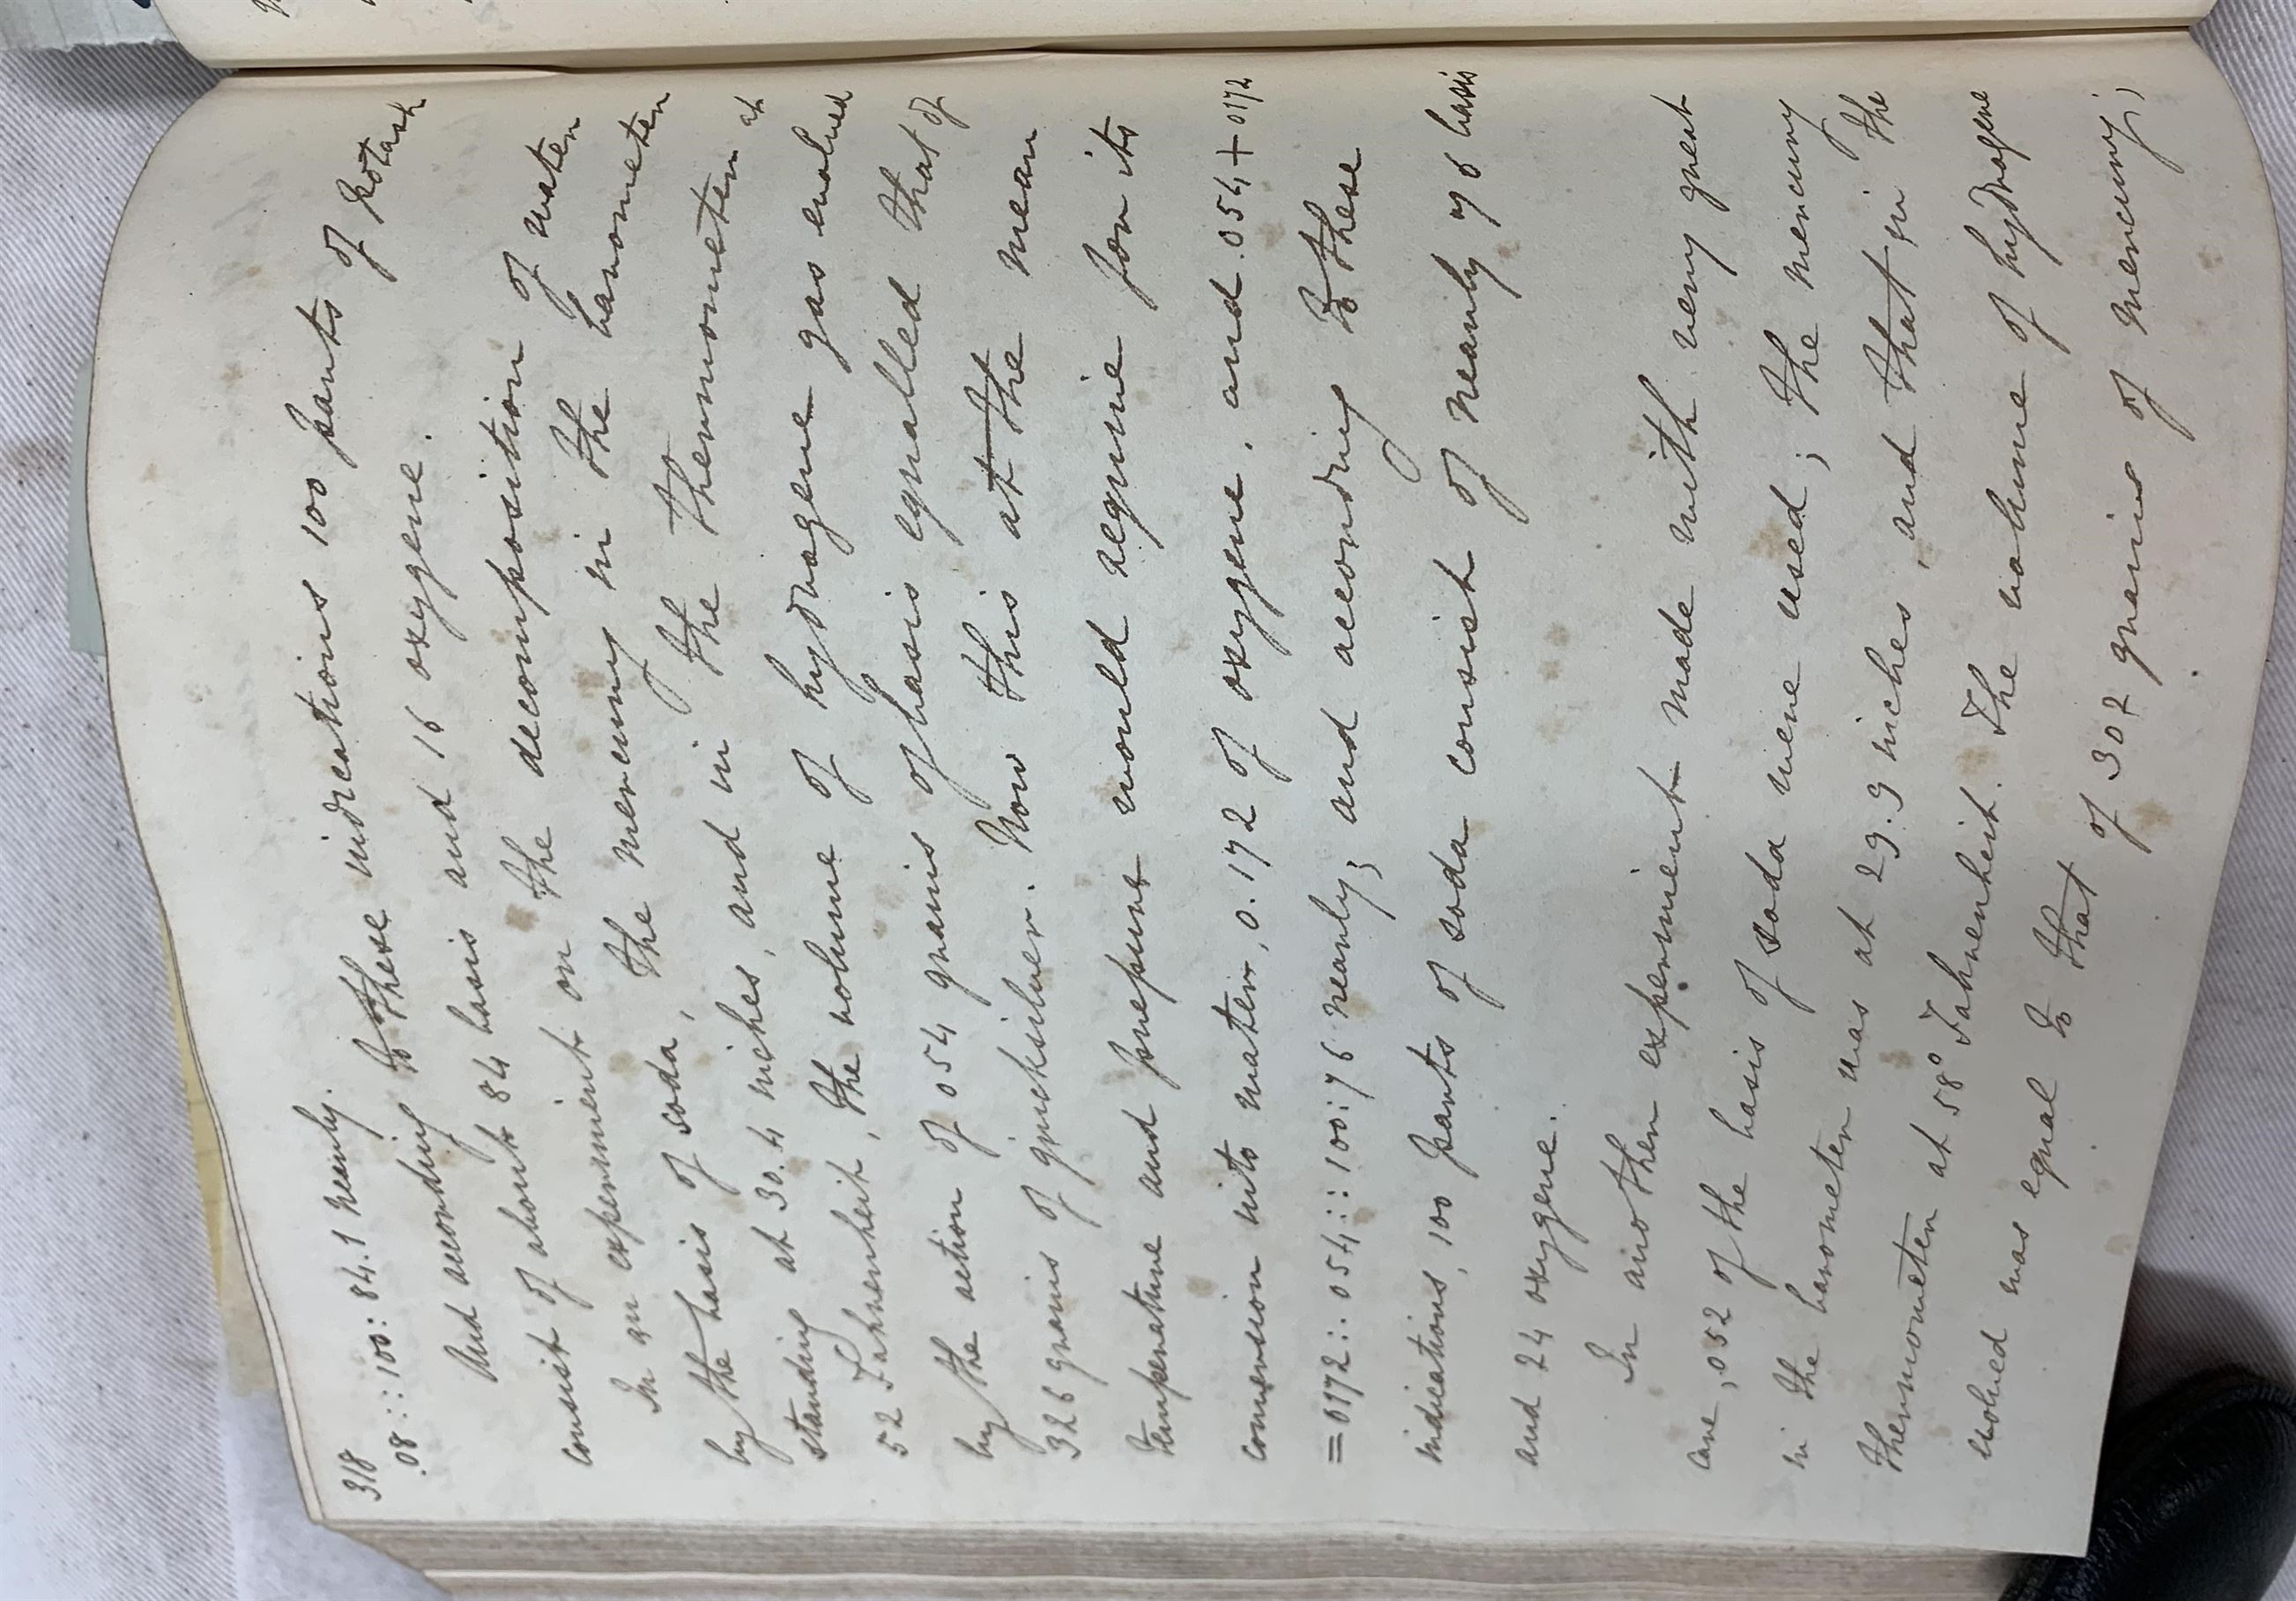 318
.08 :: 100 : 84.1 nearly.
And according to these indications 100 parts of Potash
consist of about 84 basis and 16 oxygene.
In an experiment on the decomposition of water
by the basis of soda, the mercury in the barometer
standing at 30.4 inches, and in the thermometer at
52 Fahrenheit, the volume of hydrogene gas evolved
by the action of .054 grains of basis equalled that of
326 grains of quicksilver. Now this at the mean
temperature and pressure would require for its
conversion into water, 0.172 of oxygene, and .054 + 0172
= 0172 : .054 :: 100 : 76 nearly; and according to these
indications, 100 parts of soda consist of nearly 76 basis
and 24 oxygene.
In another experiment made with very great
care, .052 of the basis of soda were used; the mercury
in the barometer was at 29.9 inches, and that in the
thermometer at 58° Fahrenheit. The volume of hydrogene
evolved was equal to that of 302 grains of mercury;